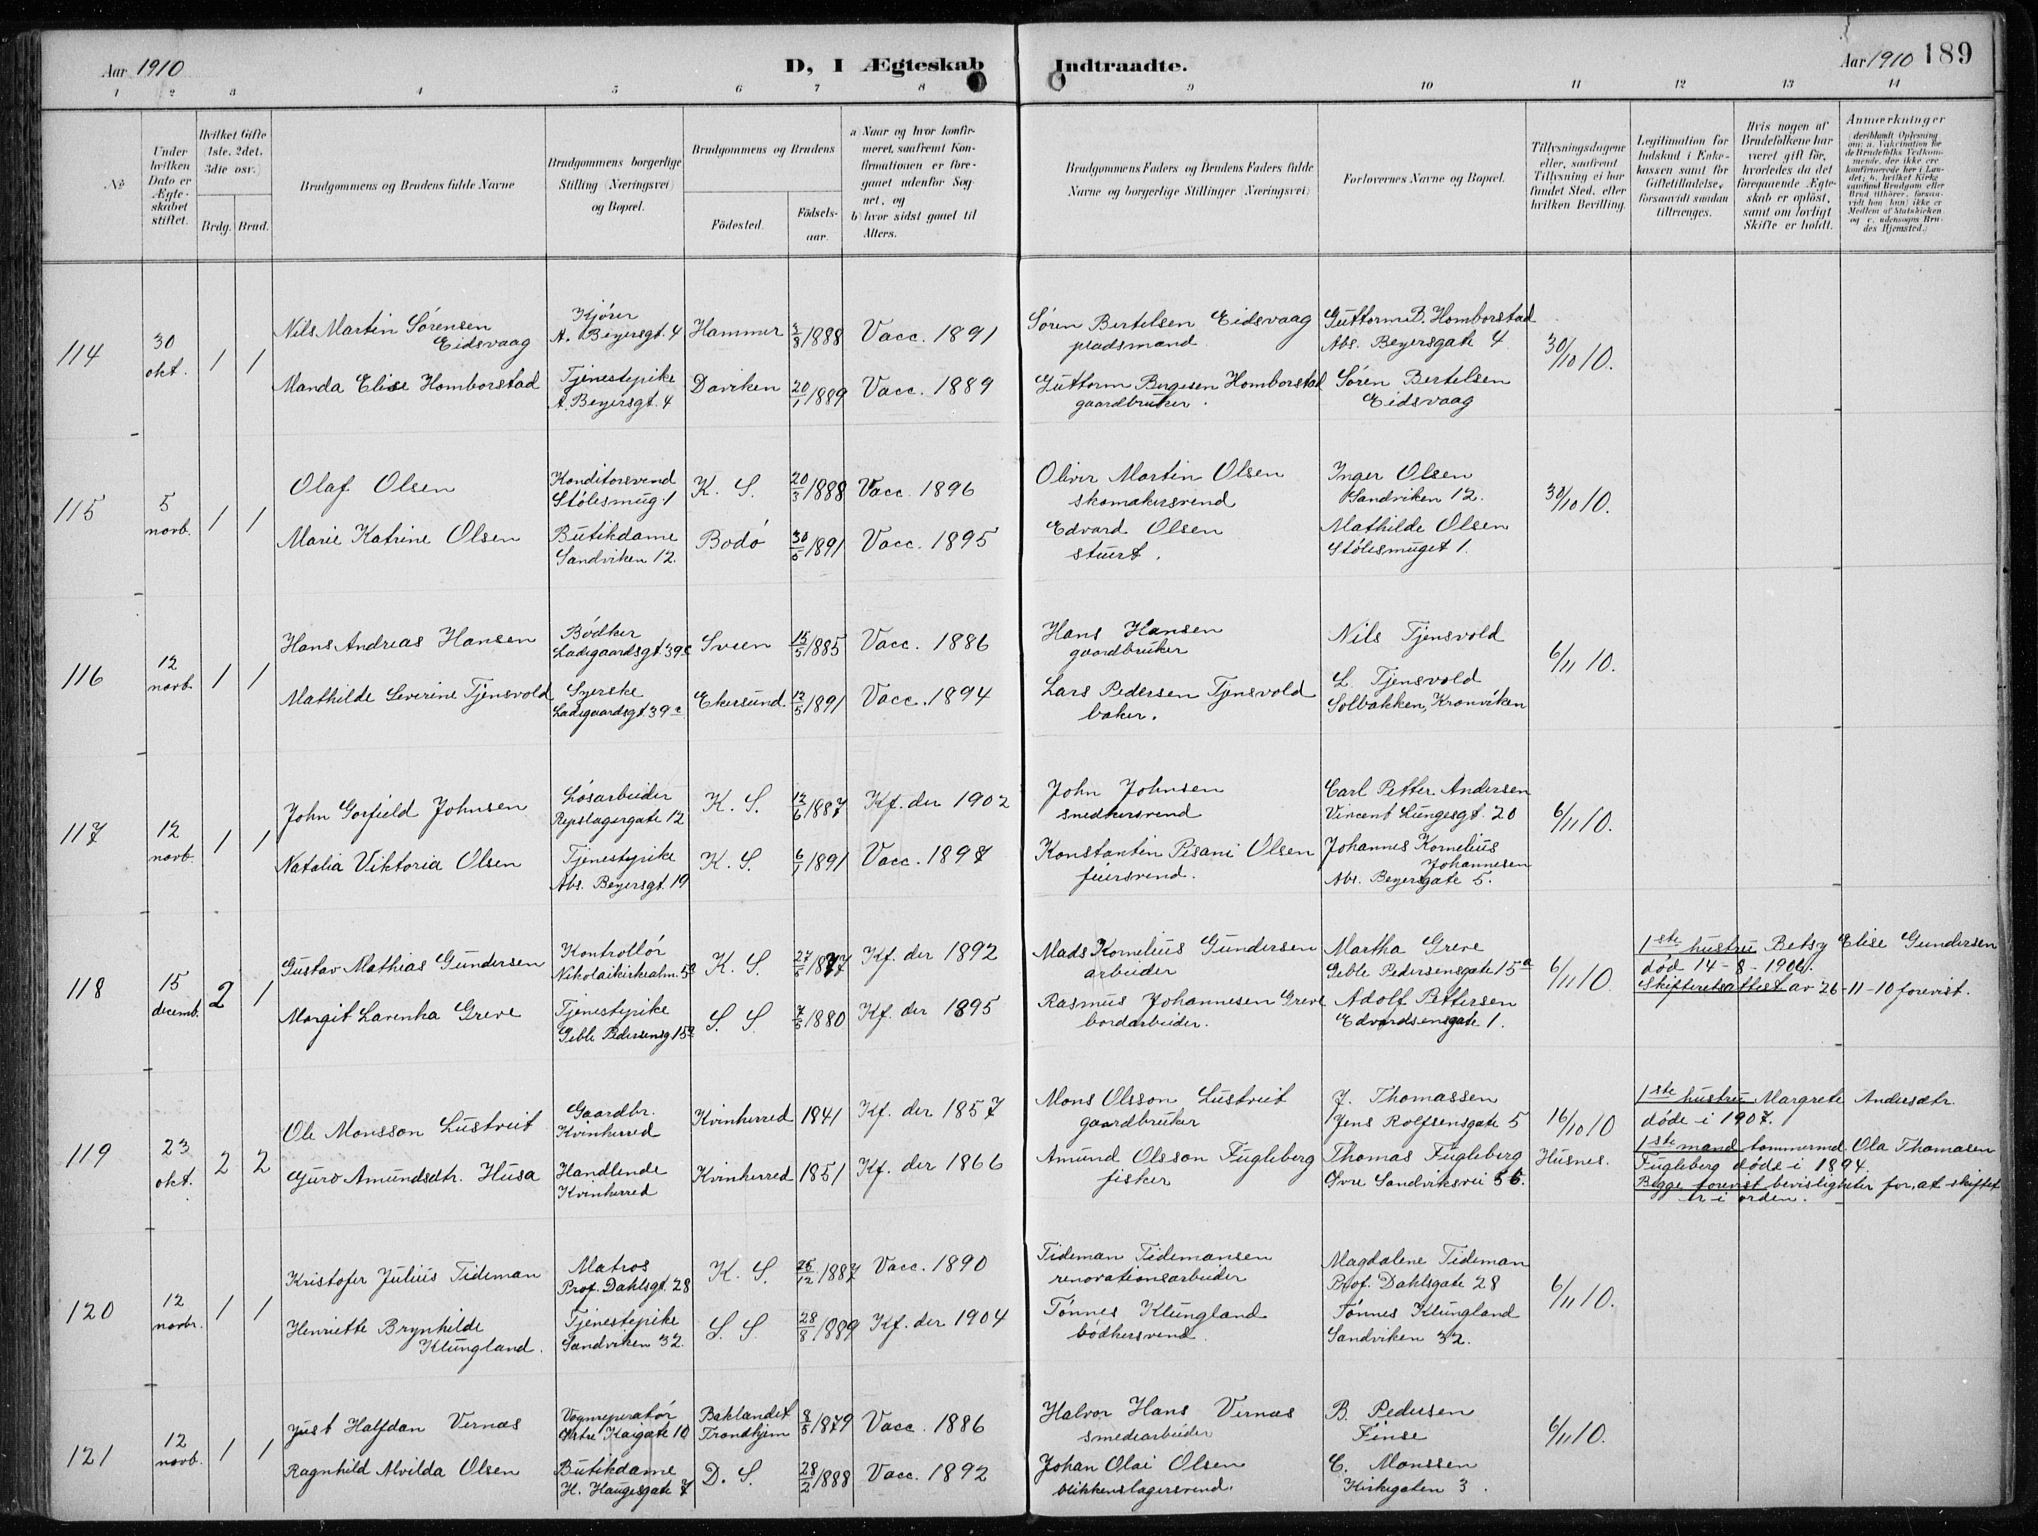 Aar 1910
D, I Ægteskab Indtraadte.
Aar 1910 189
1 2 3 4 5 6 7 8 9 10 11 12 13 14
№
Under hvilken Dato er Ægteskabet stiftet.
Hvilket Gifte (1ste, 2det, 3die osv.)
Brdg. Brud.
Brudgommens og Brudens fulde Navne
Brudgommens borgerlige Stilling (Næringsvei) og Bopæl.
Brudgommens og Brudens
Fødested.
Fødsels-aar.
a Naar og hvor konfirmeret, saafremt Konfirmationen er foregaaet udenfor Sognet, og
b) hvor sidst gaaet til Alters.
Brudgommens Faders og Brudens Faders fulde Navne og borgerlige Stillinger (Næringsvei.)
Forlovernes Navne og Bopæl.
Tillysningsdagene eller, saafremt Tillysning ei har fundet Sted, efter hvilken Bevilling.
Legitimation for Indskud i Enkekassen samt for Giftetilladelse, forsaavidt saadan tiltrænges.
Hvis nogen af Brudefolkene har været gift før, hvorledes da det foregaaende Ægteskab er opløst, samt om lovligt Skifte er holdt.
Anmærkninger
(deriblandt Oplysning om: a. Vakcination for de Brudefolks Vedkommende, der ikke ere konfirmerede her i Landet; b. hvilket Kirkesamfund Brudgom eller Brud tilhører, forsaavidt han (hun) ikke er Medlem af Statskirken og c. udensogns Brudes Hjemsted.)
114
30 okt.
1 1
Nils Martin Sørensen Eidsvaag
Kjører
A. Beyersgt. 4
Hammer
3/3 1888
Vacc. 1891
Søren Bertelsen Eidsvaag
pladsmand
Guttorm B. Homborstad
Abs. Beyersgate 4
30/10 10.
Manda Elise Homborstad
Tjenestepike
A. Beyersgt. 4
Daviken
20/1 1889
Vacc. 1889
Guttorm Børgesen Homborstad
gaardbruker.
Søren Bertelsen
Eidsvaag
115
5 novb.
1 1
Olaf Olsen
Konditorsvend
Stølesmug 1
K. S.
20/3 1888
Vacc. 1896
Oliver Martin Olsen
skomakersvend
Inger Olsen
Sandviken 12.
30/10 10.
Marie Katrine Olsen
Butikdame
Sandviken 12.
Bodø
30/5 1891
Vacc. 1895
Edvard Olsen
stuert.
Mathilde Olsen
Stølesmuget 1.
116
12 novb.
1 1
Hans Andreas Hansen
Bødker
Ladegaardsgt. 39c
Sveen
15/5 1885
Vacc. 1886
Hans Hansen
gaardbruker
Nils Tjensvold
6/11 10.
Mathilde Severine Tjensvold
Syerske
Ladegaardsgt. 39c
Ekersund.
13/5 1891
Vacc. 1894
Lars Pedersen Tjensvold
baker.
L. Tjensvold
Solbakken, Kronviken
117
12 novb.
1 1
John Gorfield Johnsen
Løsarbeider
Repslagergate 12
K. S.
12/6 1887
Kf. der 1902
John Johnsen
snedkersvend
Carl Petter Andersen
Vincent Lungesgt. 20
6/11 10.
Natalia Viktoria Olsen
Tjenestepike
Abs. Beyersgt. 19
K. S.
6/1 1891
Vacc. 1897
Konstantin Pisani Olsen
feiersvend.
Johannes Kornelius Johannesen
Abs. Beyersgate 5.
118
15 decemb.
2 1
Gustav Mathias Gundersen
Kontrollør
Nikolaikirkealm. 5a
K. S.
27/5 1877
Kf. der 1892
Mads Kornelius Gundersen
arbeider
Martha Greve
Geble Pedersensgate 15a
6/11 10.
1ste hustru Betsy Elise Gundersen
død 14-8-1906.
Skifteretsattest av 26-11-10 forevist.
Margit Lavenka Greve
Tjenestepike
Geble Pedersensg 15a
S. S.
7/5 1880
Kf. der 1895
Rasmus Johannesen Greve
bordarbeider.
Adolf Pettersen
Edvardsensgate 1.
119
23 okt.
2 2
Ole Monsson Lustveit
Gaardbr.
Kvinherred
Kvinherred
1841
Kf. der 1857
Mons Olsson Lustveit
gaardbruker
J. Thomassen
Jens Rolfsensgate 5
16/10 10
Husnes.
1ste hustru Margrete Andersdtr.
døde i 1907.
1ste mand tømmermd Ola Thomasen
Fugleberg døde i 1894.
Begge forevist bevisligheter for, at skiftet
er i orden.
Guro Amundsdtr. Husa
Handlende
Kvinherred
Kvinherred
1851
Kf. der 1866
Amund Olsson Fugleberg
fisker
Thomas Fugleberg
Øvre Sandviksvei 56.
120
12 novbr.
1 1
Kristofer Julius Tideman
Matros
Prof. Dahlsgt. 28
K. S.
26/12 1887
Vacc. 1890
Tideman Tidemansen
renovationsarbeider
Magdalene Tideman
Prof. Dahlsgate 28
6/11 10.
Henriette Brynhilde Klungland.
Tjenestepike
Sandviken 32.
S. S.
28/8 1889
Kf. der 1904
Tønnes Klungland
bødkersvend.
Tønnes Klungland
Sandviken 32.
121
12 novb.
1 1
Just Halfdan Vernæs
Vognreparatør
Østre Kaigate 10
Baklandet
Trondhjem
8/5 1879
Vacc. 1886
Halvor Hans Vernæs
smedearbeider
B. Pedersen
Finse
6/11 10.
Ragnhild Alvilda Olsen
Butikdame
H. Haugesgate 7
D. S.
28/2 1888
Vacc. 1892
Johan Olai Olsen
blikkenslagersvend.
C. Monssen
Kirkegaten 3.